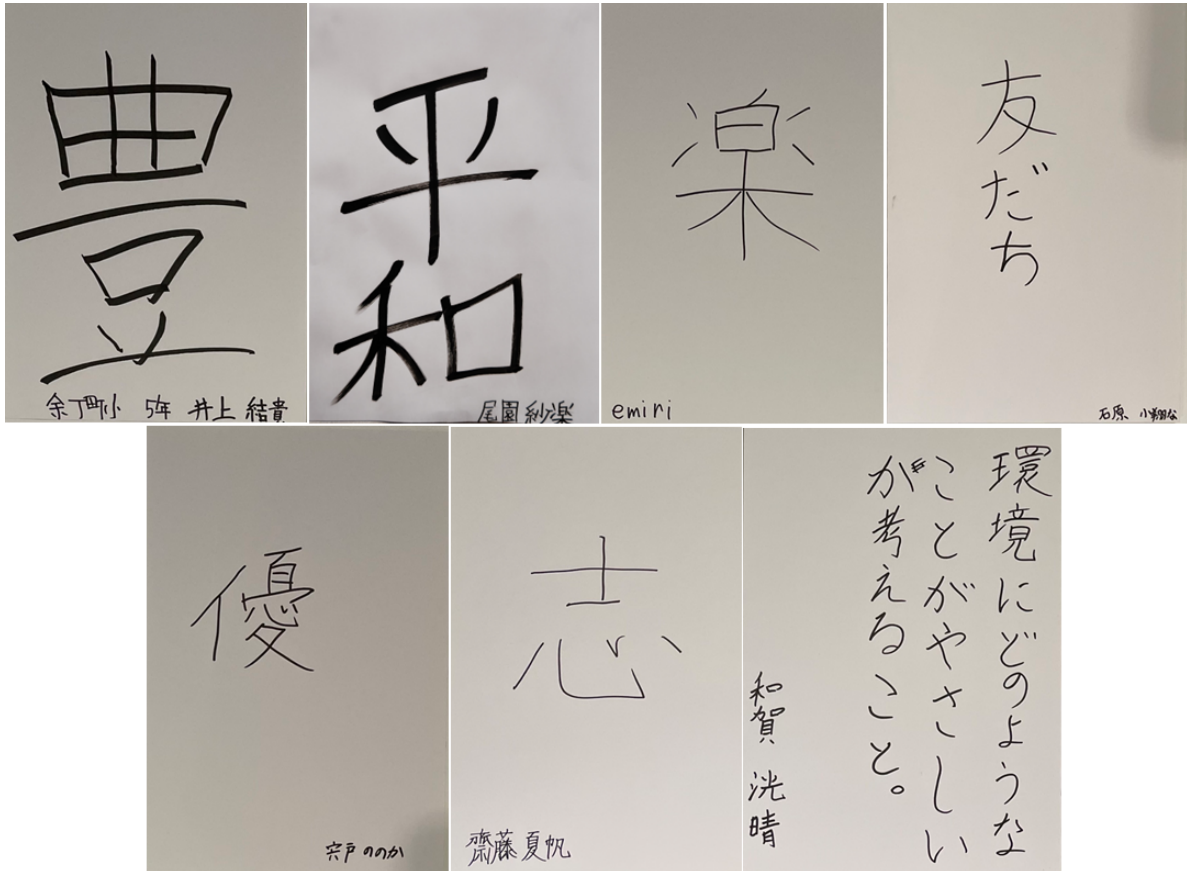 豊
余丁町小 5年 井上 結貴
平
和
尾園 紗楽
楽
emiri
友だち
石原 小翔
優
宍戸 ののか
志
齋藤 夏帆
環境にどのような
ことがやさしい
が考えること。
和賀 洸晴